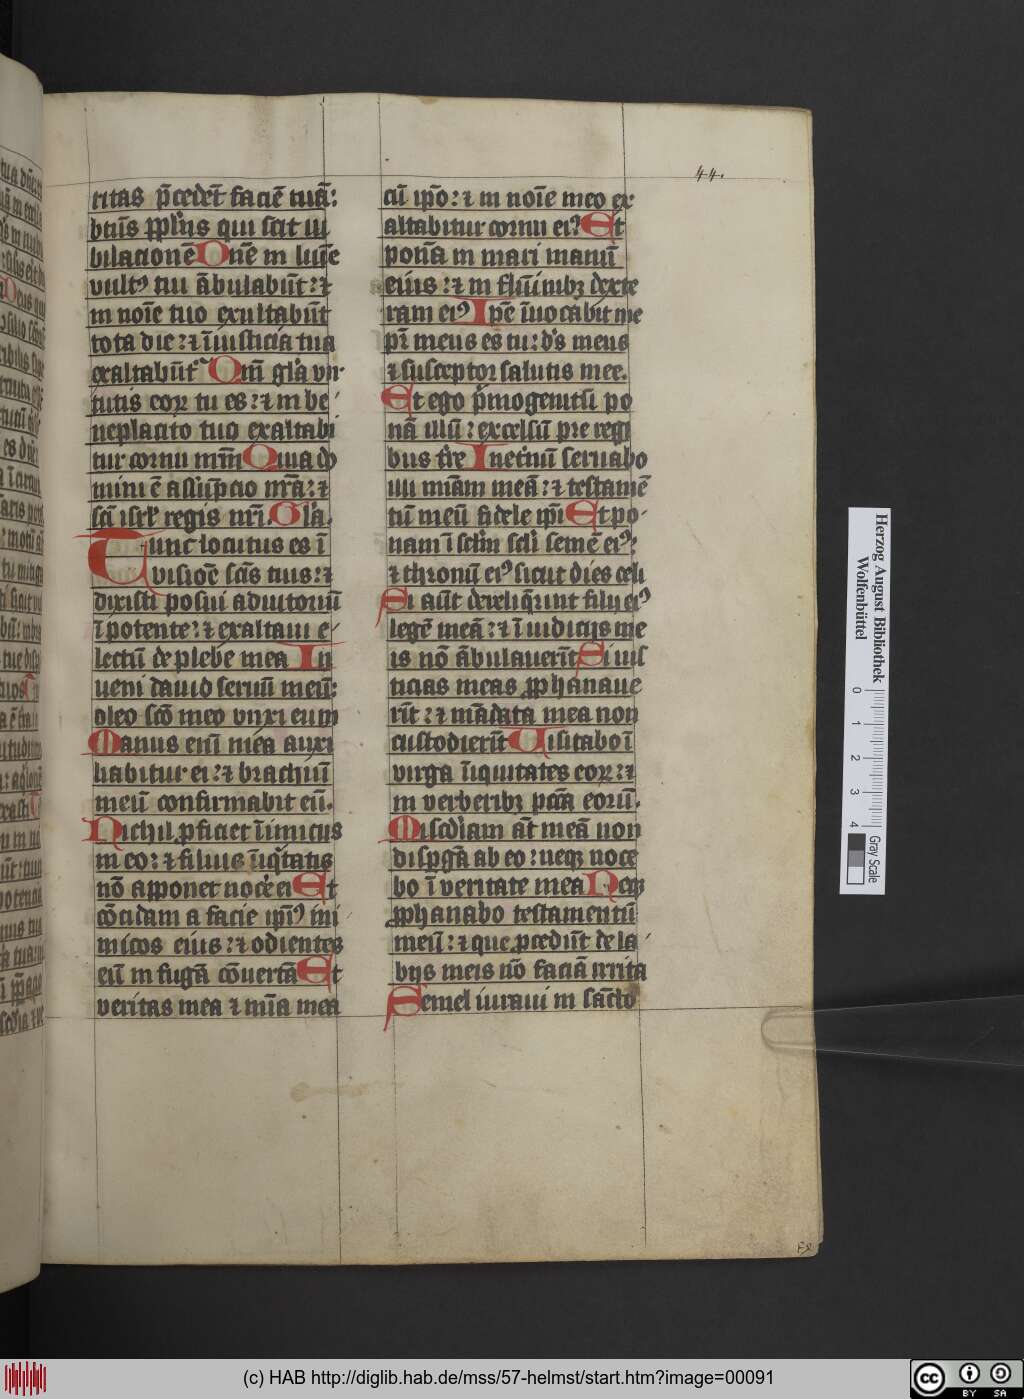 44.
ritas p̄cedēt faciē tuā:
bt̄us ppl̄us qui scit iu
bilacionē Dn̄e in lum̄e
vultꝰ tui ābulabūt: ⁊
in noīe tuo exultabūt
tota die: ⁊ ī iusticia tua
exaltabūtᷣ Qm̄ gl̄a vir
tutis eoꝝ tu es: ⁊ in be
neplacito tuo exaltabi
tur cornu nr̄m Quia do
mini ē assūpcio nr̄a: ⁊
sc̄i isrl̄ regis nr̄i. Gl̄a.
Tunc locutus es ī
visioē scīs tuis: ⁊
dixisti posui adiutoriū
ī potente: ⁊ exaltaui e
lectū de plebe mea In
ueni dauid seruū meū:
oleo sc̄o meo vnxi eum
Manus eni᷑ mea auxi
liabitur ei: ⁊ brachiū
meū confirmabit eū.
Nichil ꝓficiet īimicus
in eo: ⁊ filius īiq̄tatis
nō apponet nocere ei Et
cōcidam a facie ip̄iꝰ ini
micos eius: ⁊ odientes
eū in fugā cōuertā Et
veritas mea ⁊ mīa mea
cū ip̄o: ⁊ in noīe meo ex
altabitur cornu eiꝰ Et
ponā in mari manū
eius: ⁊ in flūinibꝫ dexte
ram eiꝰ Ip̄e īuocabit me
pr̄ meus es tu: dꝰs meus
⁊ susceptor salutis mee.
Et ego p̄mogenitū po
nā illū: excelsū pre regi
bus tr̄e In et̄nū seruabo
illi mīam meā: ⁊ testamē
tū meū fidele ip̄i Et po
nam ī sclm̄ scl̄i semē eiꝰ:
⁊ thronū eiꝰ sicut dies celi
Si aūt dereliq̄rint filij eiꝰ
legē meā: ⁊ ī iudicijs me
is nō ābulauerīt Si ius
ticias meas ꝓphanaue
rīt: ⁊ mādata mea non
custodierīt Uisitabo ī
virga īiquitates eoꝝ: ⁊
in verberibꝫ pcc̄a eorū.
Misc̄diam āt meā non
disp̄gā ab eo: neqꝫ noce
bo ī veritate mea Neqꝫ
ꝓphanabo testamentū
meū: ⁊ que ꝓcedūt de la
bijs meis nō faciā irrita
Semel iuraui in sācto
Herzog August Bibliothek
Wolfenbüttel
0 1 2 3 4
Gray Scale
(c) HAB http://diglib.hab.de/mss/57-helmst/start.htm?image=00091
cc BY SA